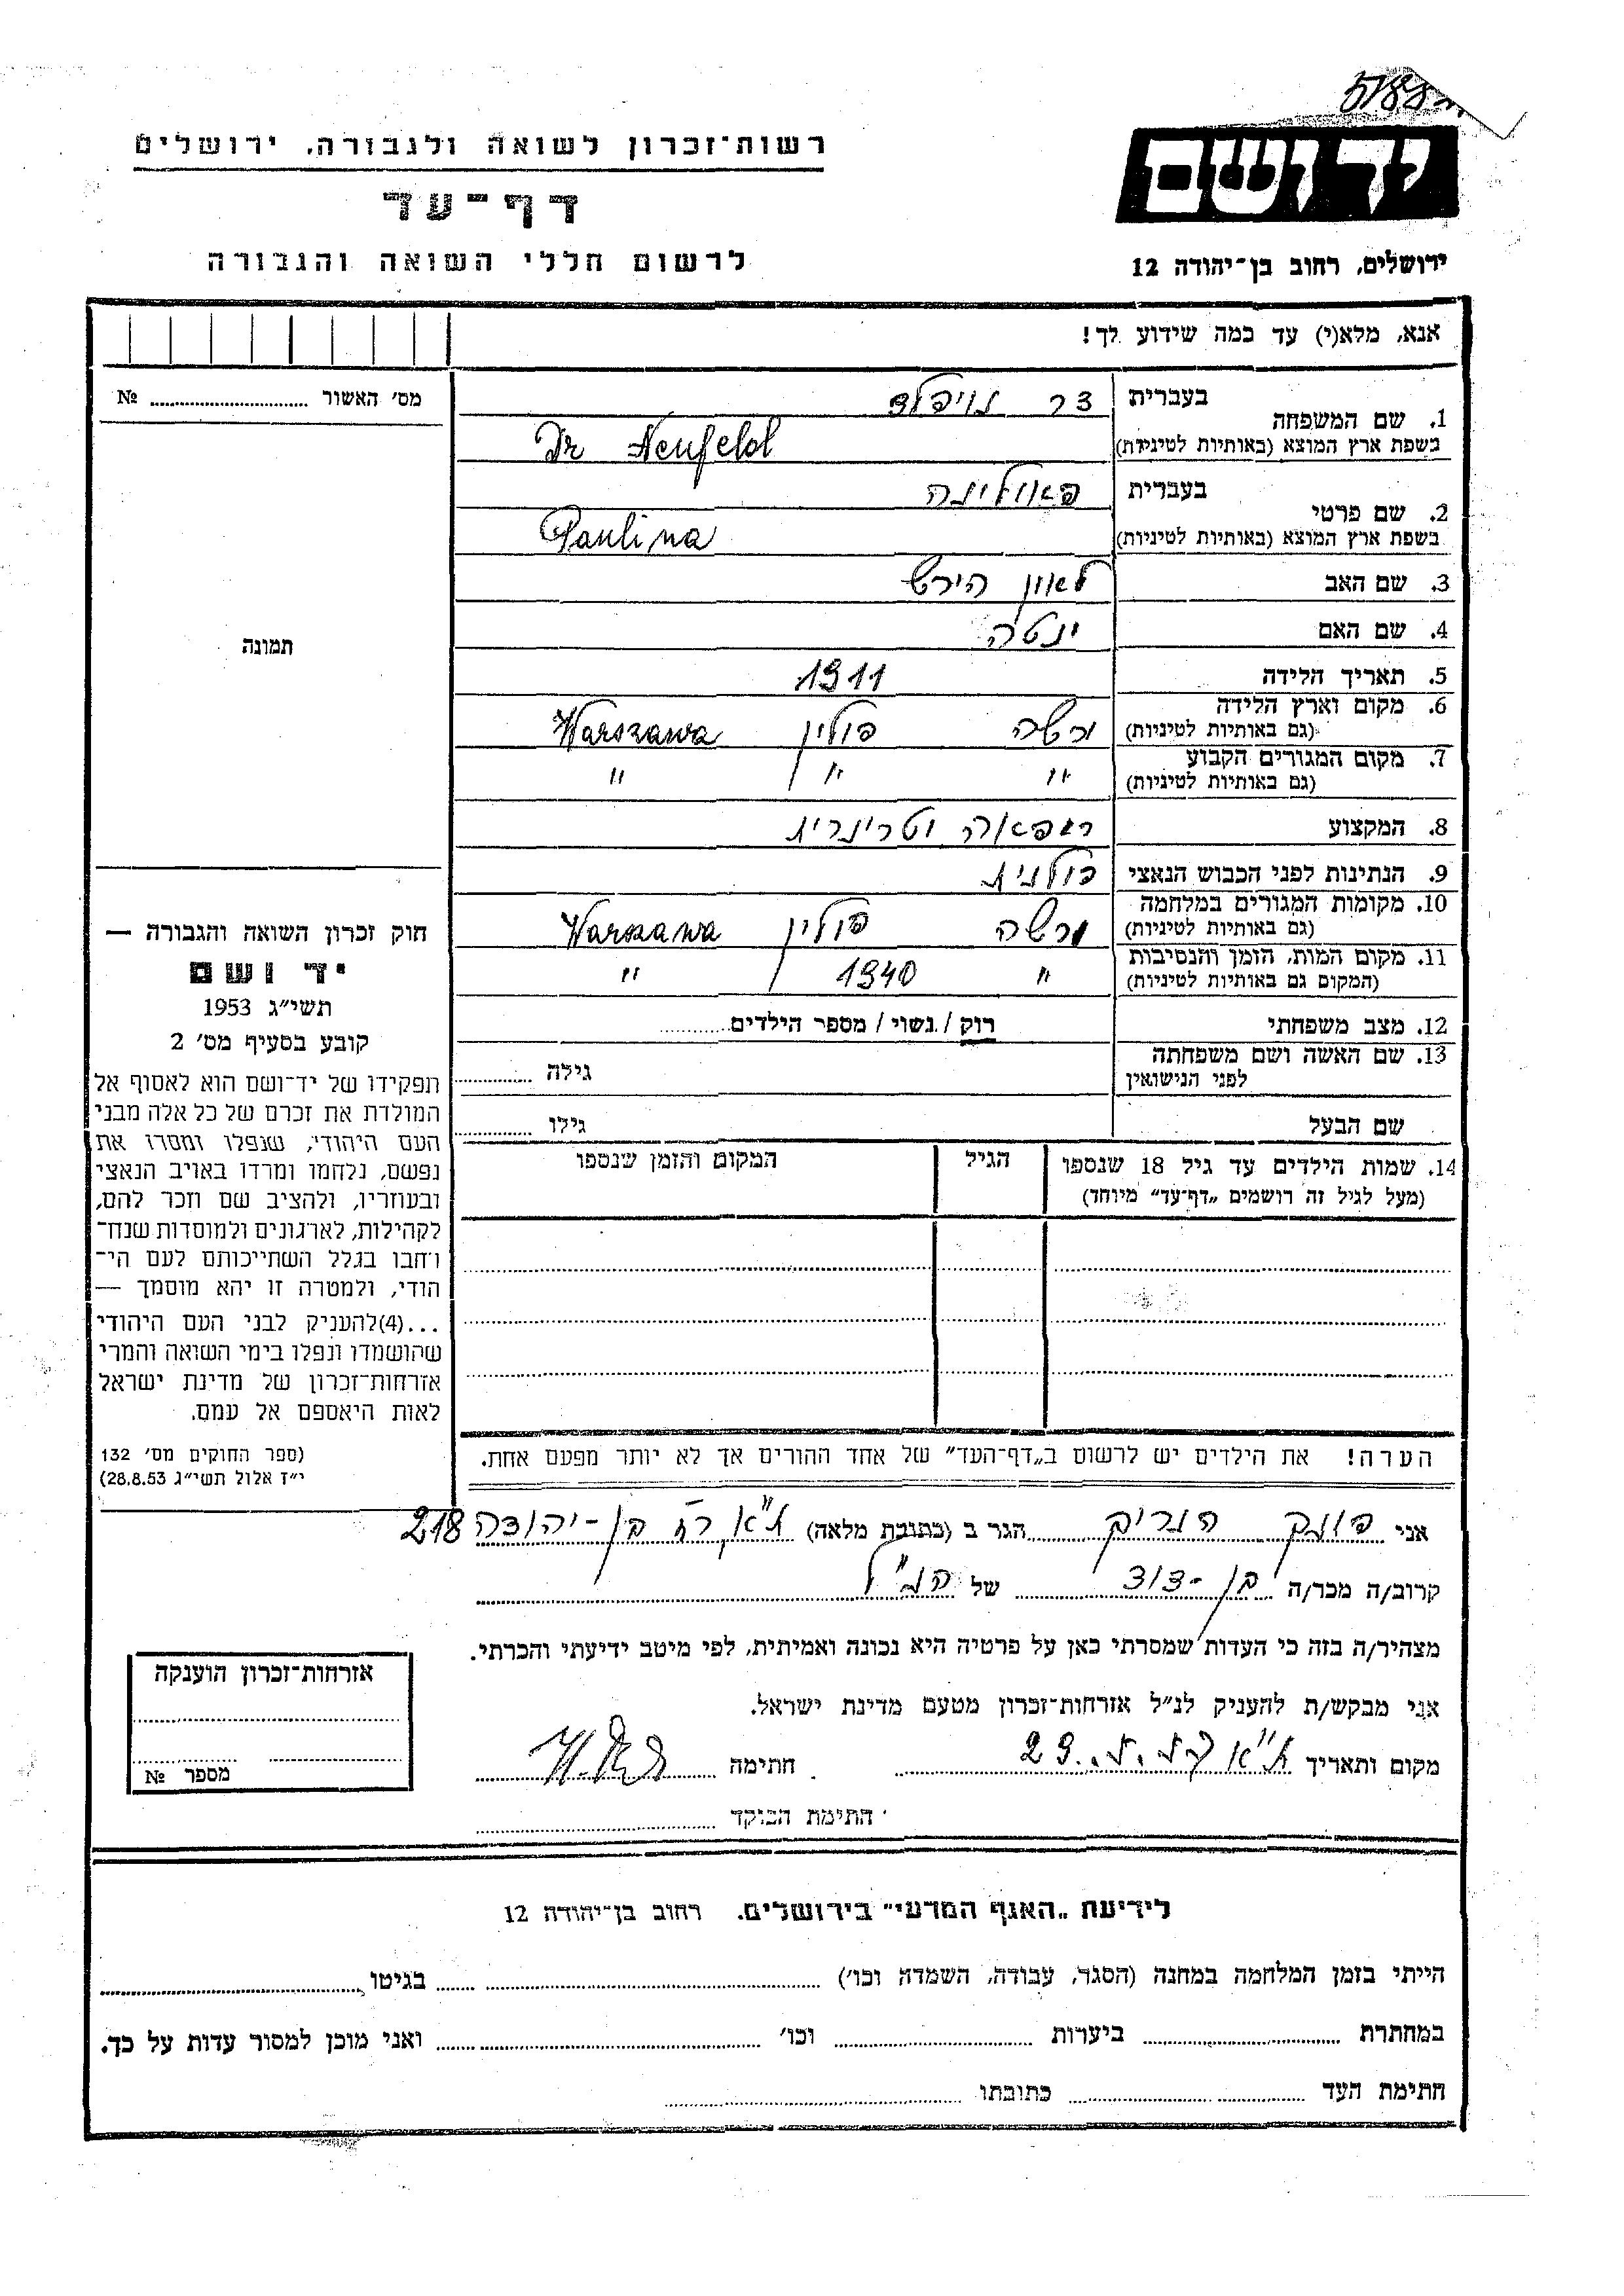 רשות־זכרון לשואה ולגבורה, ירושלים
דף־עד
לרשום חללי השואה והגבורה
ידושם
ירושלים, רחוב בן־יהודה 12
אנא, מלא(י) עד כמה שידוע לך!
מס׳ האשור № 
תמונה
חוק זכרון השואה והגבורה —
יד ושם
תשי״ג 1953
קובע בסעיף מס׳ 2
תפקידו של יד־ושם הוא לאסוף אל
המולדת את זכרם של כל אלה מבני
העם היהודי, שנפלו ומסרו את
נפשם, נלחמו ומרדו באויב הנאצי
ובעוזריו, ולהציב שם וזכר להם,
לקהילות, לארגונים ולמוסדות שנח־
רחבו בגלל השתייכותם לעם הי־
הודי, ולמטרה זו יהא מוסמך —
...(4)להעניק לבני העם היהודי
שהושמדו ונפלו בימי השואה והמרי
אזרחות־זכרון של מדינת ישראל
לאות היאספם אל עמם.
(ספר החוקים מס׳ 132
י״ז אלול תשי״ג 28.8.53)
1. שם המשפחה
בעברית דר נויפלד
בשפת ארץ המוצא (באותיות לטיניות) Dr Neufeld
2. שם פרטי
בעברית פאולינה
בשפת ארץ המוצא (באותיות לטיניות) Paulina
3. שם האב לאון הירש
4. שם האם ינטה
5. תאריך הלידה 1911
6. מקום וארץ הלידה
(גם באותיות לטיניות) ורשה פולין Warszawa
7. מקום המגורים הקבוע
(גם באותיות לטיניות) " " "
8. המקצוע רופאה וטרינרית
9. הנתינות לפני הכבוש הנאצי פולנית
10. מקומות המגורים במלחמה
(גם באותיות לטיניות) ורשה פולין Warszawa
11. מקום המות, הזמן והנסיבות
(המקום גם באותיות לטיניות) " 1940 "
12. מצב משפחתי רוק / נשוי / מספר הילדים
13. שם האשה ושם משפחתה
לפני הנישואין גילה
שם הבעל גילו
14. שמות הילדים עד גיל 18 שנספו הגיל המקום והזמן שנספו
(מעל לגיל זה רושמים „דף־עד״ מיוחד)
הערה! את הילדים יש לרשום ב„דף־העד״ של אחד ההורים אך לא יותר מפעם אחת.
אני הנריק הגר ב (כתובת מלאה) ת"א רח בן-יהודה 218
קרוב/ה מכר/ה בן-דוד של הנ"ל
מצהיר/ה בזה כי העדות שמסרתי כאן על פרטיה היא נכונה ואמיתית, לפי מיטב ידיעתי והכרתי.
אני מבקש/ת להעניק לנ״ל אזרחות־זכרון מטעם מדינת ישראל.
מקום ותאריך ת"א חתימה
חתימת הפוקד
אזרחות־זכרון הוענקה
מספר №
לידיעת „האגף המדעי״ בירושלים. רחוב בן־יהודה 12
הייתי בזמן המלחמה במחנה (הסגר, עבודה, השמדה וכו׳) בגיטו
במחתרת ביערות וכו׳ ואני מוכן למסור עדות על כך.
חתימת העד כתובתו